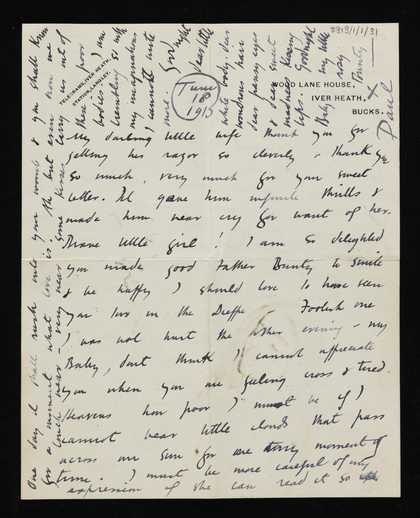 8818/1/1/31
TELEGRAMS, IVER HEATH.
STATION, LANGLEY.
WOOD LANE HOUSE,
IVER HEATH,
BUCKS.
June
18
1915
My darling little wife thank you for
getting his razor so cleverly & thank you
so much, very much for your sweet
letter. It gave him infinite thrills &
made him near cry for want of her.
Brave little girl! I am so delighted
you made good Father Bunty to smile
& be happy I should love to have seen
you two in the Dieppe. Foolish one
I was not hurt the other evening - my
Baby, don't think I cannot appreciate
you when you are feeling cross & tired.
Heavens how poor I must be if I
cannot bear little clouds that pass
across our sun for one tiny moment of
time. I must be more careful of my
expression if she can read it so
One day it shall rush into your womb & you shall know
for a moment what love is. Ah but even now we
come near - very near some kisses
carry us out of
their poor
bodies I am
trembling so with
my imaginations
I cannot write
more. Good night
dear little
white body, dear
wondrous hair
dear pansy eyes
& dear sweet
madness kissing
lips. Goodnight
Only my little
rosy
Bunty
x
Paul